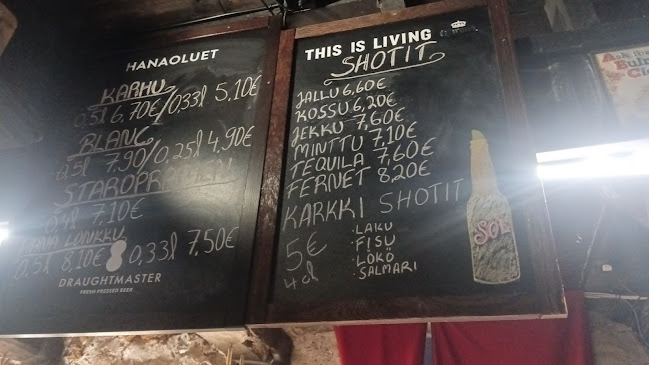 HANAOLUET
KARHU
0,5l 6,70€/0,33l 5,10€
BLANC
7,90/0,25l 4,90€
STAROPRAMEN
7,10€
LONKKU
0,5l 8,10€ 0,33l 7,50€
DRAUGHTMASTER
FRESH PRESSED BEER
THIS IS LIVING
SHOTIT
JALLU 6,60€
KOSSU 6,20€
JEKKU 7,60€
MINTTU 7,10€
TEQUILA 7,60€
FERNET 8,20€
KARKKI SHOTIT
5€
4cl
·LAKU
·FISU
·LÖKÖ
·SALMARI
SOL